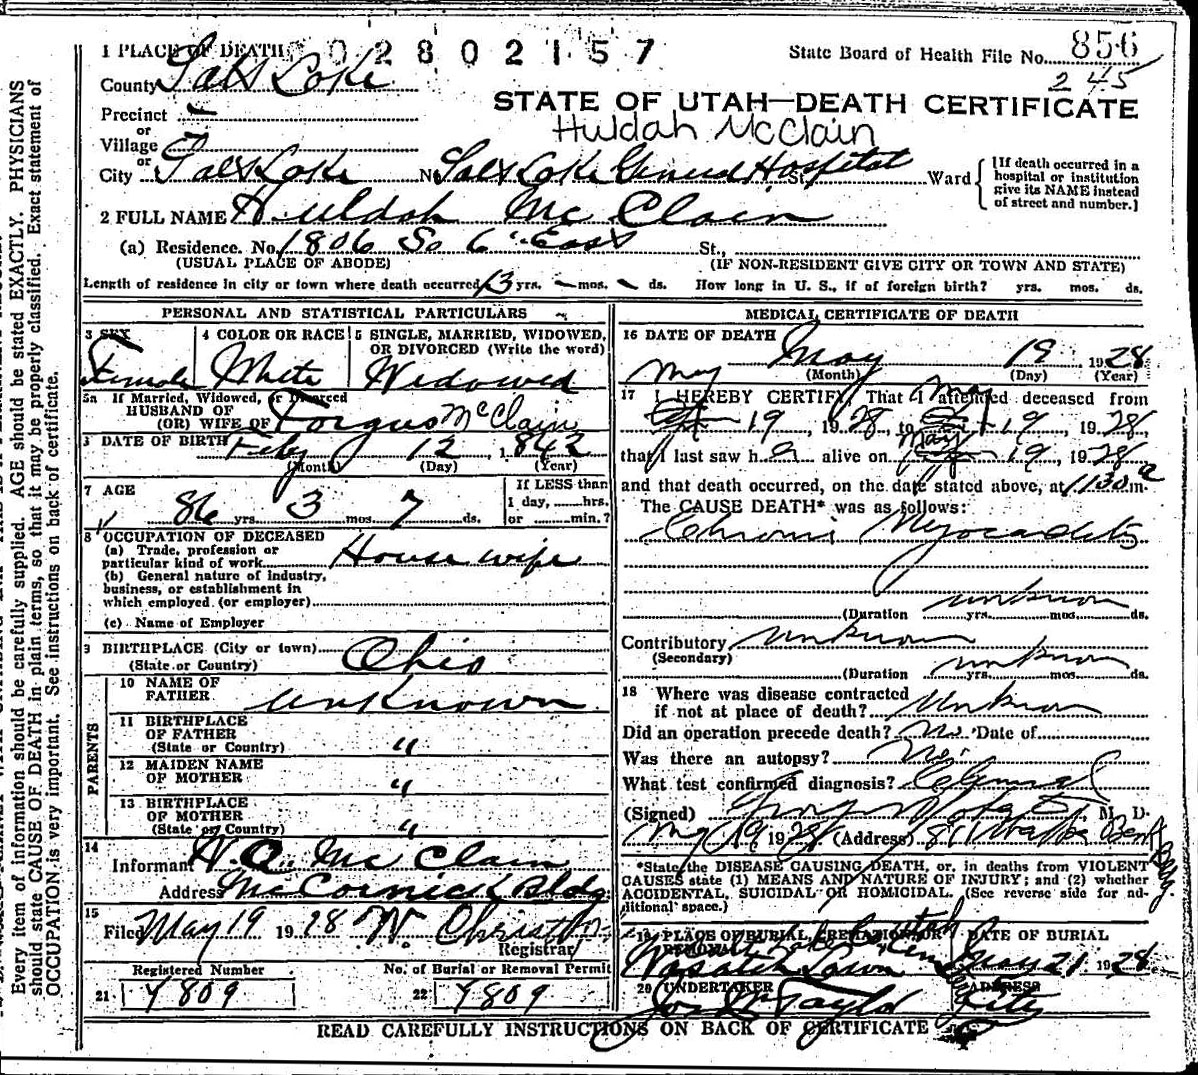 Every item of information should be carefully supplied. AGE should be stated EXACTLY. PHYSICIANS
should state CAUSE OF DEATH in plain terms, so that it may be properly classified. Exact statement of
OCCUPATION is very important. See instructions on back of certificate.
02802157
State Board of Health File No. 856
245
1 PLACE OF DEATH
County Salt Lake
STATE OF UTAH—DEATH CERTIFICATE
Precinct
or
Huldah McClain
Village
or
City Salt Lake No. Salt Lake General Hospital St. Ward
[If death occurred in a
hospital or institution
give its NAME instead
of street and number.]
2 FULL NAME Huldah McClain
(a) Residence. No. 1806 So 6" East St.,
(USUAL PLACE OF ABODE) (IF NON-RESIDENT GIVE CITY OR TOWN AND STATE)
Length of residence in city or town where death occurred 13 yrs. — mos. ds. How long in U. S., if of foreign birth? yrs. mos. ds.
PERSONAL AND STATISTICAL PARTICULARS
3 SEX
Female
4 COLOR OR RACE
White
5 SINGLE, MARRIED, WIDOWED,
OR DIVORCED (Write the word)
Widowed
5a If Married, Widowed, or Divorced
HUSBAND OF
(OR) WIFE OF Fergus McClain
DATE OF BIRTH Feby 12, 1842
(Month) (Day) (Year)
7 AGE
86 yrs. 3 mos. 7 ds.
If LESS than
1 day, hrs.
or min.?
8 OCCUPATION OF DECEASED
(a) Trade, profession or
particular kind of work House wife
(b) General nature of industry,
business, or establishment in
which employed (or employer)
(c) Name of Employer
9 BIRTHPLACE (City or town)
(State or Country) Ohio
PARENTS
10 NAME OF
FATHER unknown
11 BIRTHPLACE
OF FATHER
(State or Country) "
12 MAIDEN NAME
OF MOTHER "
13 BIRTHPLACE
OF MOTHER
(State or Country) "
14
Informant McClain
Address McCormick Bldg
15
Filed May 19 1928
Registrar
Registered Number
21 Y809
No. of Burial or Removal Permit
22 Y809
MEDICAL CERTIFICATE OF DEATH
16 DATE OF DEATH May 19 1928
(Month) (Day) (Year)
May
17 I HEREBY CERTIFY, That I attended deceased from
May
19, 1928, to 19, 1928
May
that I last saw her alive on 19, 1928
and that death occurred, on the date stated above, at 1130 a m.
The CAUSE DEATH* was as follows:
Chronic Myocarditis
(Duration unknown yrs. mos. ds.
Contributory unknown
(Secondary)
(Duration unknown yrs. mos. ds.
18 Where was disease contracted
if not at place of death? Unknown
Did an operation precede death? No Date of
Was there an autopsy? No
What test confirmed diagnosis? Clinical
(Signed) M. D.
May 19 1928 (Address)
*State the DISEASE CAUSING DEATH, or, in deaths from VIOLENT
CAUSES state (1) MEANS AND NATURE OF INJURY; and (2) whether
ACCIDENTAL, SUICIDAL OR HOMICIDAL. (See reverse side for ad-
ditional space.)
19 PLACE OF BURIAL, CREMATION OR
REMOVAL
Wasatch Lawn
DATE OF BURIAL
May 21 1928
20 UNDERTAKER
Taylor
ADDRESS
City
READ CAREFULLY INSTRUCTIONS ON BACK OF CERTIFICATE